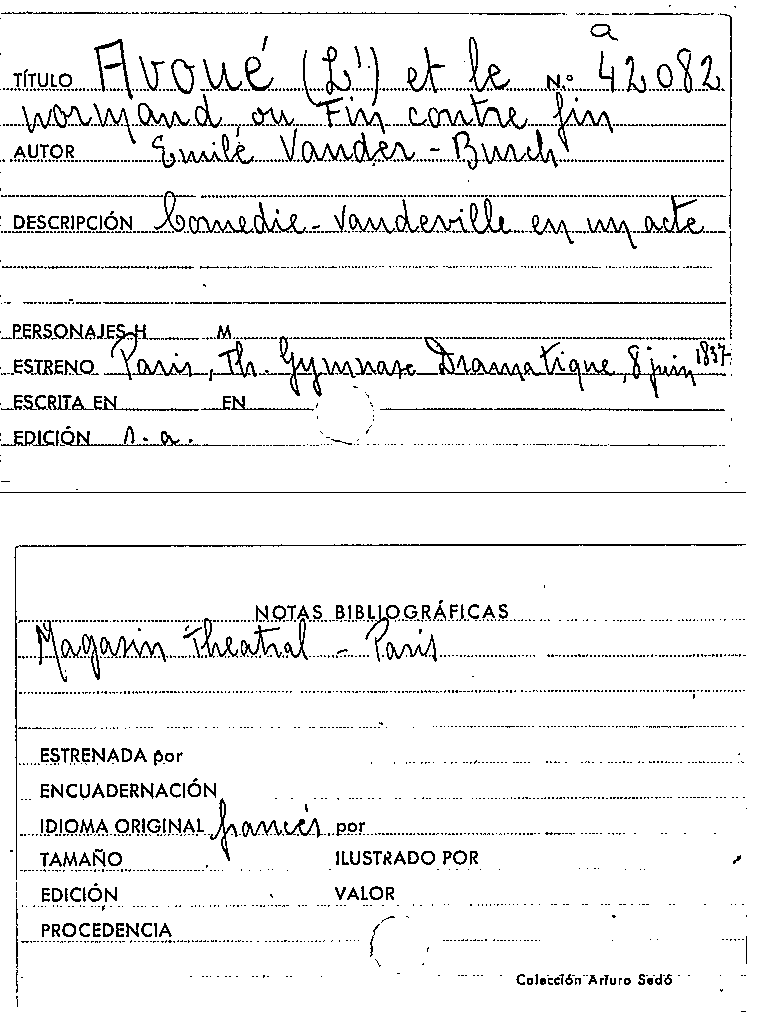 a
TÍTULO Avoué (L') et le N.º 42082
normand, ou Fin contre fin
AUTOR Emile Vander-Burch
DESCRIPCIÓN Comedie-Vaudeville en un acte
PERSONAJES H M
ESTRENO Paris, Th. Gymnase Dramatique, 8 juin 1837
ESCRITA EN EN
EDICIÓN s. a.
NOTAS BIBLIOGRÁFICAS
Magasin Theatral - Paris
ESTRENADA por
ENCUADERNACIÓN
IDIOMA ORIGINAL francés por
TAMAÑO ILUSTRADO POR
EDICIÓN VALOR
PROCEDENCIA
Colección Arturo Sedó